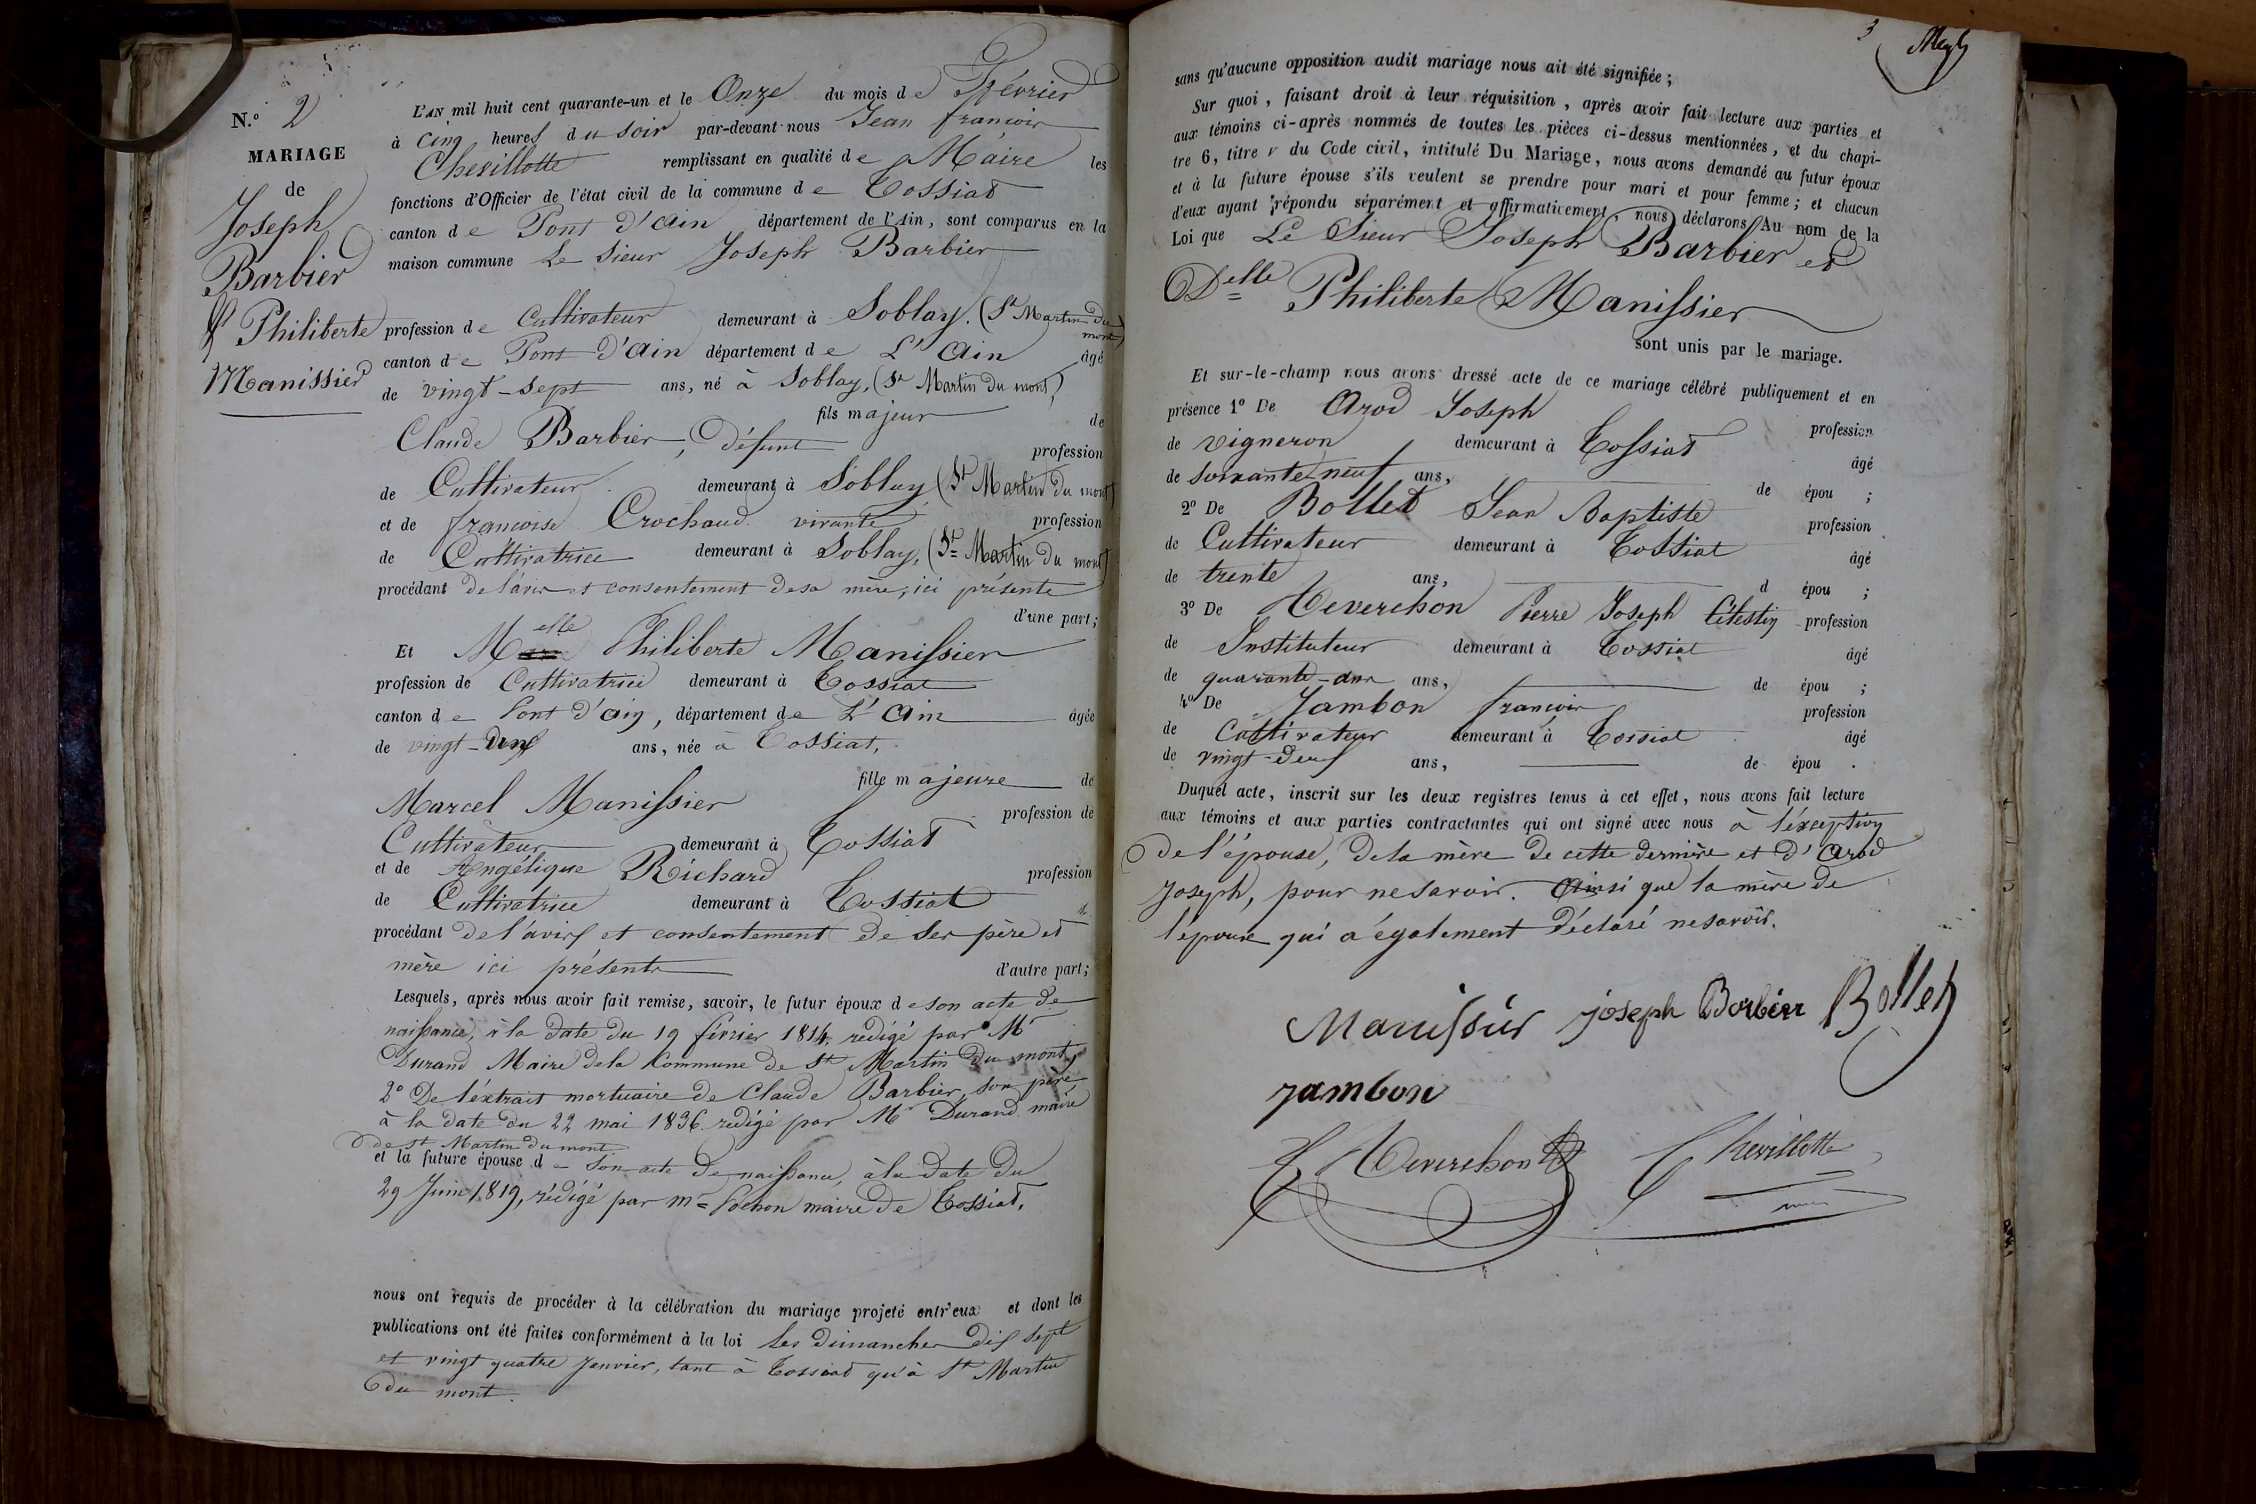 N.° 2
MARIAGE
de
Joseph
Barbier
et Philiberte
Manissier
L'AN mil huit cent quarante-un et le Onze du mois de Février
à Cinq heures du soir par-devant nous Jean françois
Chevillotte remplissant en qualité de Maire les
fonctions d'Officier de l'état civil de la commune de Tossiat
canton de Pont d'Ain département de l'Ain, sont comparus en la
maison commune Le sieur Joseph Barbier
profession de Cultivateur demeurant à Soblay. (St Martin du mont)
canton de Pont d'Ain département de L'Ain âgé
de vingt-sept ans, né à Soblay, (St Martin du mont)
fils majeur de
Claude Barbier, défunt profession
de Cultivateur demeurant à Soblay (St Martin du mont)
et de françoise Crochaud vivante profession
de Cultivatrice demeurant à Soblay, (St Martin du mont)
procédant de l'avis et consentement de sa mère, ici présente
d'une part;
Et Melle Philiberte Manissier
profession de Cultivatrice demeurant à Tossiat
canton de Pont d'ain, département de L'Ain âgée
de vingt-un ans, née à Tossiat,
fille majeure de
Marcel Manissier profession de
Cultivateur demeurant à Tossiat
et de Angélique Richard profession
de Cultivatrice demeurant à Tossiat
procédant de l'avis et consentement de ses père et
mère ici présents d'autre part;
Lesquels, après nous avoir fait remise, savoir, le futur époux de son acte de
naissance, à la date du 19 février 1814, rédigé par Mr
Durand Maire de la Commune de St Martin du mont,
2° De l'éxtrait mortuaire de Claude Barbier, son père
à la date du 22 mai 1836. rédigé par Mr Durand maire
de St Martin du mont
et la future épouse de son acte de naissance, à la date du
29 Juin 1819, rédigé par mr Pochon maire de Tossiat.
nous ont requis de procéder à la célébration du mariage projeté entr'eux et dont les
publications ont été faites conformément à la loi les dimanches dix sept
et vingt quatre Janvier, tant à Tossiat qu'à St Martin
du mont.
3
sans qu'aucune opposition audit mariage nous ait été signifiée;
Sur quoi, faisant droit à leur réquisition, après avoir fait lecture aux parties et
aux témoins ci-après nommés de toutes les pièces ci-dessus mentionnées, et du chapi-
tre 6, titre V du Code civil, intitulé Du Mariage, nous avons demandé au futur époux
et à la future épouse s'ils veulent se prendre pour mari et pour femme; et chacun
d'eux ayant répondu séparément et affirmativement, nous déclarons Au nom de la
Loi que Le Sieur Joseph Barbier et
Delle Philiberte Manissier
sont unis par le mariage.
Et sur-le-champ nous avons dressé acte de ce mariage célébré publiquement et en
présence 1° De Arod Joseph profession
de vigneron demeurant à Tossiat âgé
de soixante neuf ans, de épou ;
2° De Bollet Jean Baptiste profession
de Cultivateur demeurant à Tossiat âgé
de trente ans, d épou ;
3° De Teverchon Pierre Joseph Célestin profession
de Instituteur demeurant à Tossiat âgé
de quarante-deux ans, de épou ;
4° De Jambon françois profession
de Cultivateur demeurant à Tossiat âgé
de vingt-deux ans, de épou .
Duquel acte, inscrit sur les deux registres tenus à cet effet, nous avons fait lecture
aux témoins et aux parties contractantes qui ont signé avec nous à l'éxception
de l'épouse, de la mère de cette dernière et d'Arod
Joseph, pour ne savoir. Ainsi que la mère de
l'époux qui a également déclaré ne savoir.
Manissier joseph Barbier Bollet
jambon
Teverchon Chevillotte